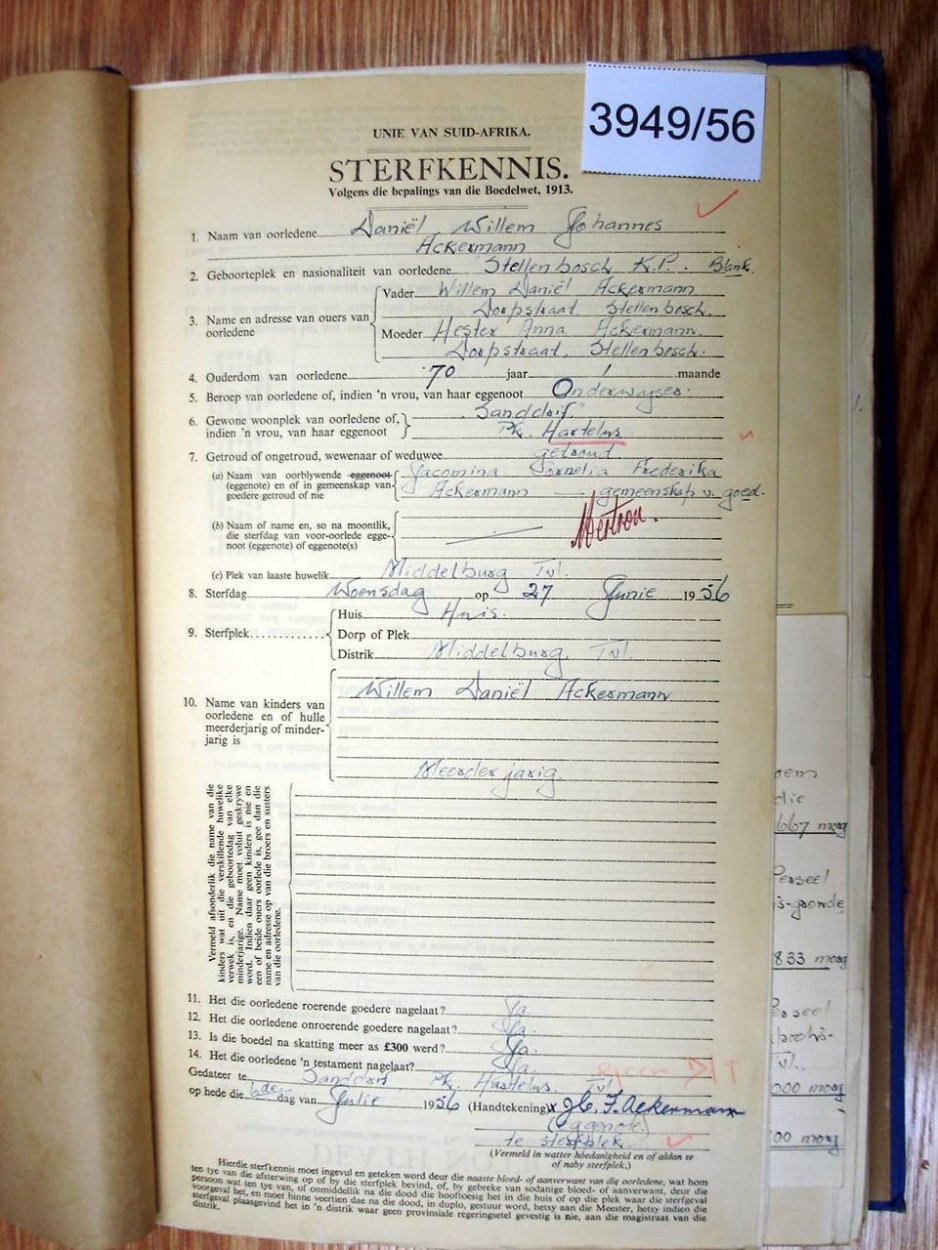 3949/56
UNIE VAN SUID-AFRIKA.
STERFKENNIS.
Volgens die bepalings van die Boedelwet, 1913.
1. Naam van oorledene Daniël Willem Johannes
Ackermann
2. Geboorteplek en nasionaliteit van oorledene Stellenbosch K.P. Blank.
Vader Willem Daniël Ackermann
Dorpstraat Stellenbosch.
3. Name en adresse van ouers van oorledene
Moeder Hester Anna Ackermann.
Dorpstraat, Stellenbosch.
4. Ouderdom van oorledene 70 jaar 1 maande
5. Beroep van oorledene of, indien 'n vrou, van haar eggenoot Onderwyser.
6. Gewone woonplek van oorledene of, "Sanddrif"
indien 'n vrou, van haar eggenoot Pk. Hartelus
7. Getroud of ongetroud, wewenaar of weduwee getroud
(a) Naam van oorblywende eggenoot Jacomina Cornelia Frederika
(eggenote) en of in gemeenskap van Ackermann — gemeenskap v. goed.
goedere getroud of nie
(b) Naam of name en, so na moontlik,
die sterfdag van voor-oorlede egge-
noot (eggenote) of eggenote(s)
(c) Plek van laaste huwelik Middelburg Tvl.
8. Sterfdag Woensdag op 27 Junie 1956
Huis Huis.
9. Sterfplek Dorp of Plek
Distrik Middelburg, Tvl.
Willem Daniël Ackermann
10. Name van kinders van
oorledene en of hulle
meerderjarig of minder-
jarig is
Meerderjarig.
Vermeld afsonderlik die name van die
kinders wat uit die verskillende huwelike
verwek is, en die geboortedag van elke
minderjarige. Name moet voluit geskrywe
word. Indien daar geen kinders is nie en
een of beide ouers oorlede is, gee dan die
name en adresse op van die broers en susters
van die oorledene.
11. Het die oorledene roerende goedere nagelaat? Ja.
12. Het die oorledene onroerende goedere nagelaat? Ja.
13. Is die boedel na skatting meer as £300 werd? Ja.
14. Het die oorledene 'n testament nagelaat? Ja
Gedateer te Sanddrif Pk. Hartelus, Tvl
op hede die 6de dag van Julie 1956 (Handtekening) x J.C.F. Ackermann
(eggenote)
te sterfplek.
(Vermeld in watter hoedanigheid en of aldan te
of naby sterfplek.)
Hierdie sterfkennis moet ingevul en geteken word deur die naaste bloed- of aanverwant van die oorledene, wat hom
ten tye van die afsterwing op of by die sterfplek bevind, of, by gebreke van sodanige bloed- of aanverwant, deur die
persoon wat ten tye van, of onmiddellik na die dood die hooftoesig het in die huis of op die plek waar die sterfgeval
voorgeval het, en moet binne veertien dae na die dood, in duplo, gestuur word, hetsy aan die Meester, hetsy indien die
sterfgeval plaasgevind het in 'n distrik waar geen provinsiale regeringsetel gevestig is nie, aan die magistraat van die
distrik.
oem
die
667 morg
Perseel
s-gronde
833 morg
Perseel
Tvl.
000 morg
00 morg